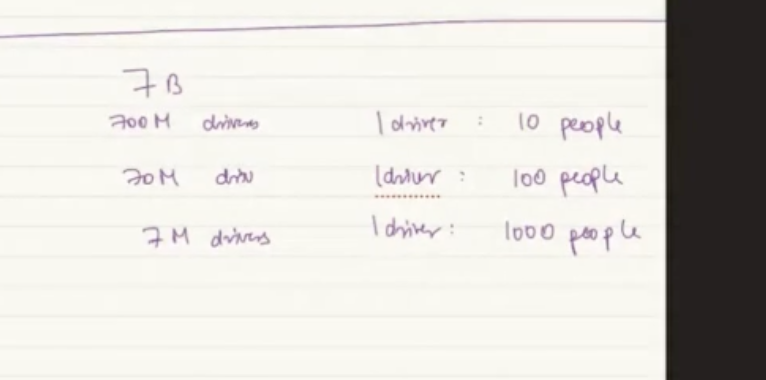 7 B
700M drivers 1 driver : 10 people
70M driv 1 driver : 100 people
7 M drivers 1 driver : 1000 people